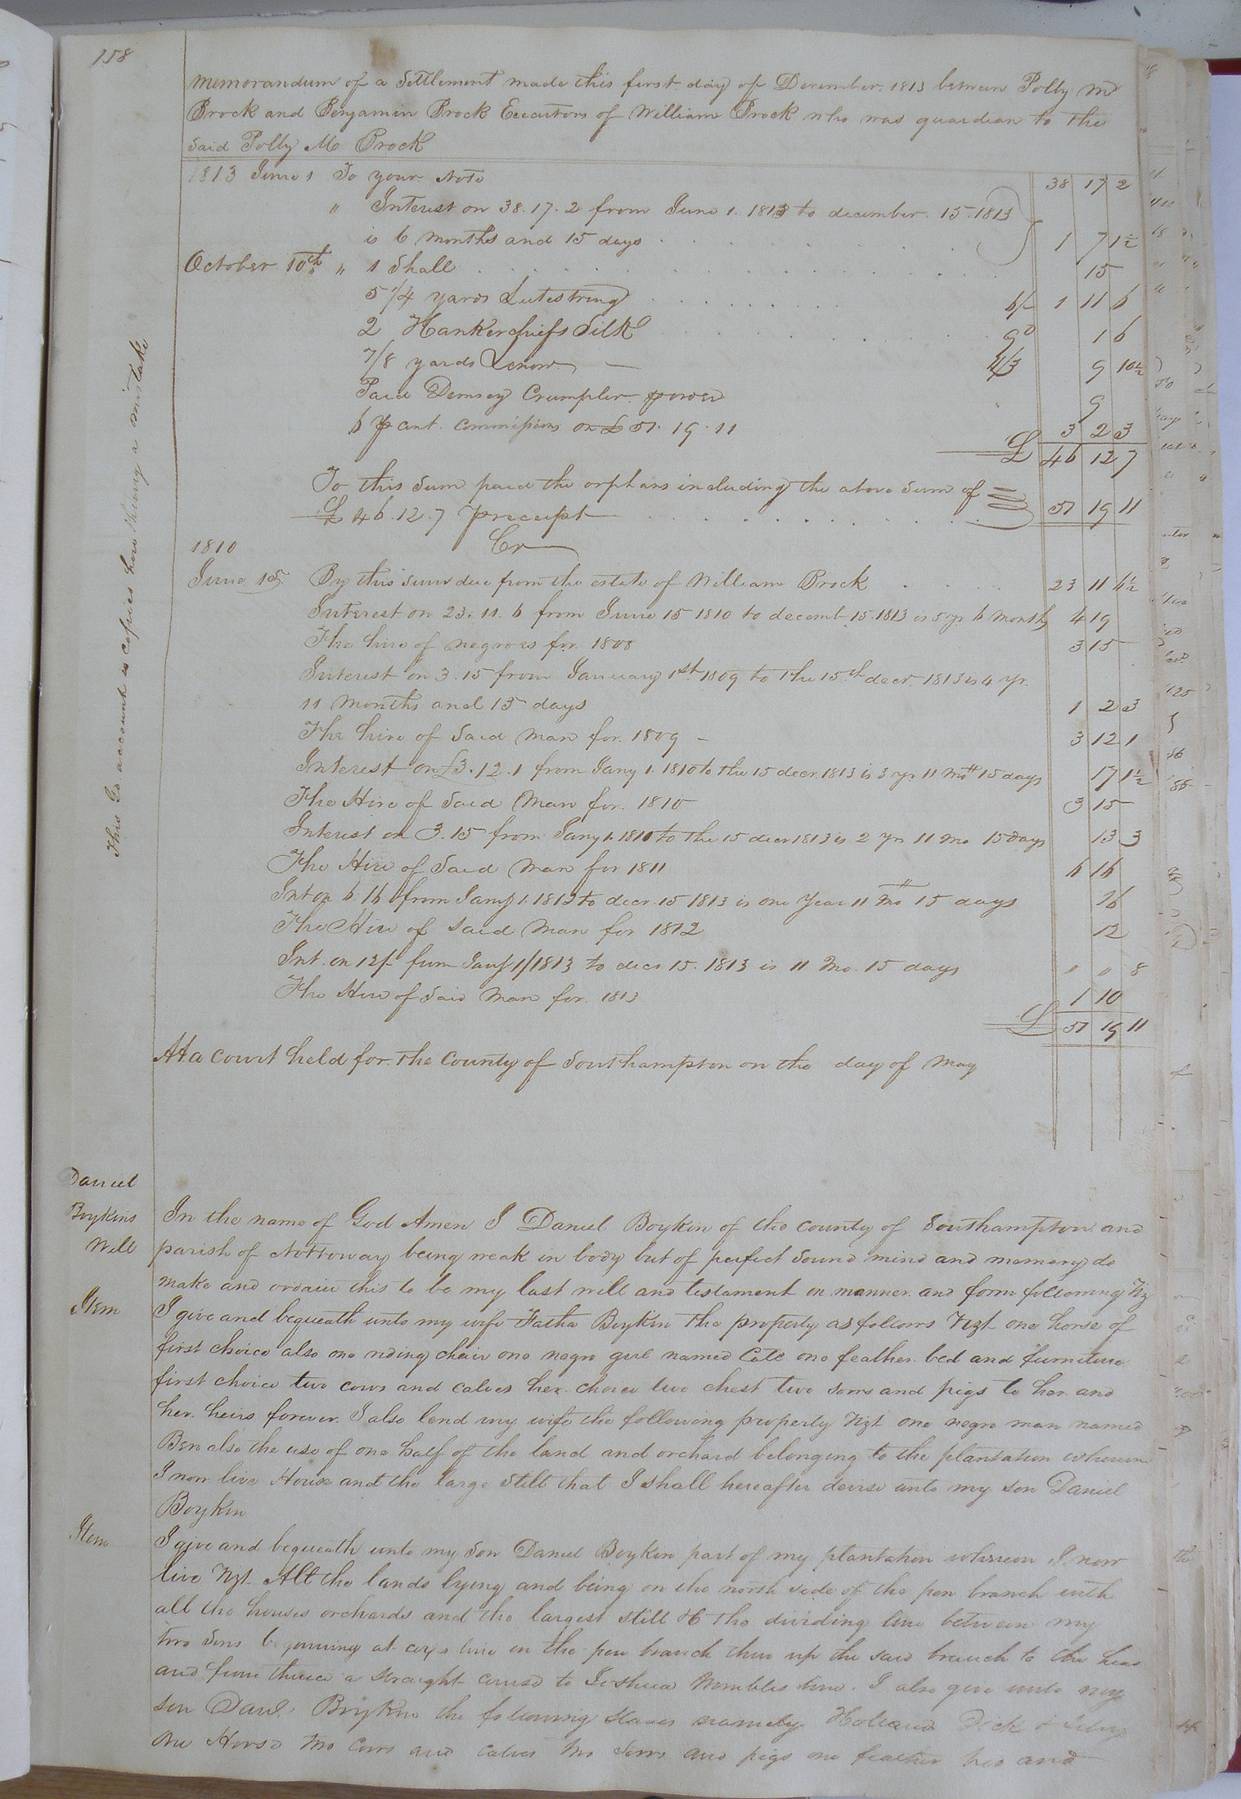 158
Memorandum of a Settlement made this first day of December 1813 between Polly M
Brock and Benjamin Brock Executors of William Brock who was guardian to the
Said Polly M. Brock
1813 June 1 To your Note 38 17 2
" Interest on 38.17.2 from June 1. 1813 to december. 15. 1813
is 6 months and 15 days 1 7 1½
October 10th " 1 Shall 15
5 1/4 yards Lutestring 6/ 1 11 6
2 Hankerchiefs Silk 9d 1 6
7/8 yards 11/3 9 10½
Paid Demsey Crumpler 9
6 pr cent. Commissions on £51. 19. 11 3 2 3
£ 46 12 7
To this Sum paid the orphans including the above Sum of
£ 46. 12. 7 pr receipt 51 19 11
1810 Cr
June 15 By this Sum due from the estate of William Brock 23 11 6½
Interest on 23. 11. 6 from June 15 1810 to decemb 15. 1813 is 3 yr 6 month 4 19
The hire of negroes for 1808 3 15
Interest on 3. 15 from January 1st. 1809 to the 15th decr 1813 is 4 yr.
11 Months and 15 days 1 2 3
The hire of Said Man for. 1809 - 3 12 1
Interest on £3. 12. 1 from Jany 1. 1810 to the 15 decr. 1813 is 3 yr 11 Mo 15 days 17 1½
The Hire of Said Man for. 1810 3 15
Interest on 3. 15 from Jany 1. 1811 to the 15 decr 1813 is 2 Yr 11 Mo 15 days 13 3
The Hire of Said Man for 1811 6 16
Int on 6 16 from Jany 1. 1812 to decr. 15 1813 is one Year 11 Mo 15 days 16
The Hire of Said Man for 1812 12
Int. on 12/- from Jany 1/1813 to decr 15. 1813 is 11 Mo. 15 days " " 8
The Hire of Said Man for. 1813 1 10
£ 51 19 11
At a Court held for the County of Southampton on the day of May
This account is copied here through a mistake
Daniel
Boykins
Will
In the name of God Amen I Daniel Boykin of the county of Southampton and
parish of Nottoway being weak in body but of perfect Sound mind and memory do
make and ordain this to be my last will and testament in manner and form following Vizt
Item
I give and bequeath unto my wife Faitha Boykin the property as follows Vizt one horse of
first choice also one riding chair one negro girl named Cate one feather bed and furniture
first choice two cows and calves her choice two chest two sows and pigs to her and
her heirs forever. I also lend my wife the following property Vizt one negro man named
Ben also the use of one half of the land and orchard belonging to the plantation whereon
I now live House and the large Still that I shall hereafter devise unto my son Daniel
Boykin
Item
I give and bequeath unto my Son Daniel Boykin part of my plantation whereon I now
live Vizt All the lands lying and being on the north side of the pen branch with
all the houses orchards and the largest still the dividing line between my
two Sons beginning at line on the pen branch then up the said branch to the head
and from thence a straight course to Joshua Wombles line. I also give unto my
son Danl. Boykin the following Slaves namely Holland Dick &
One Horse two Cows and calves two Sows and pigs one feather bed and